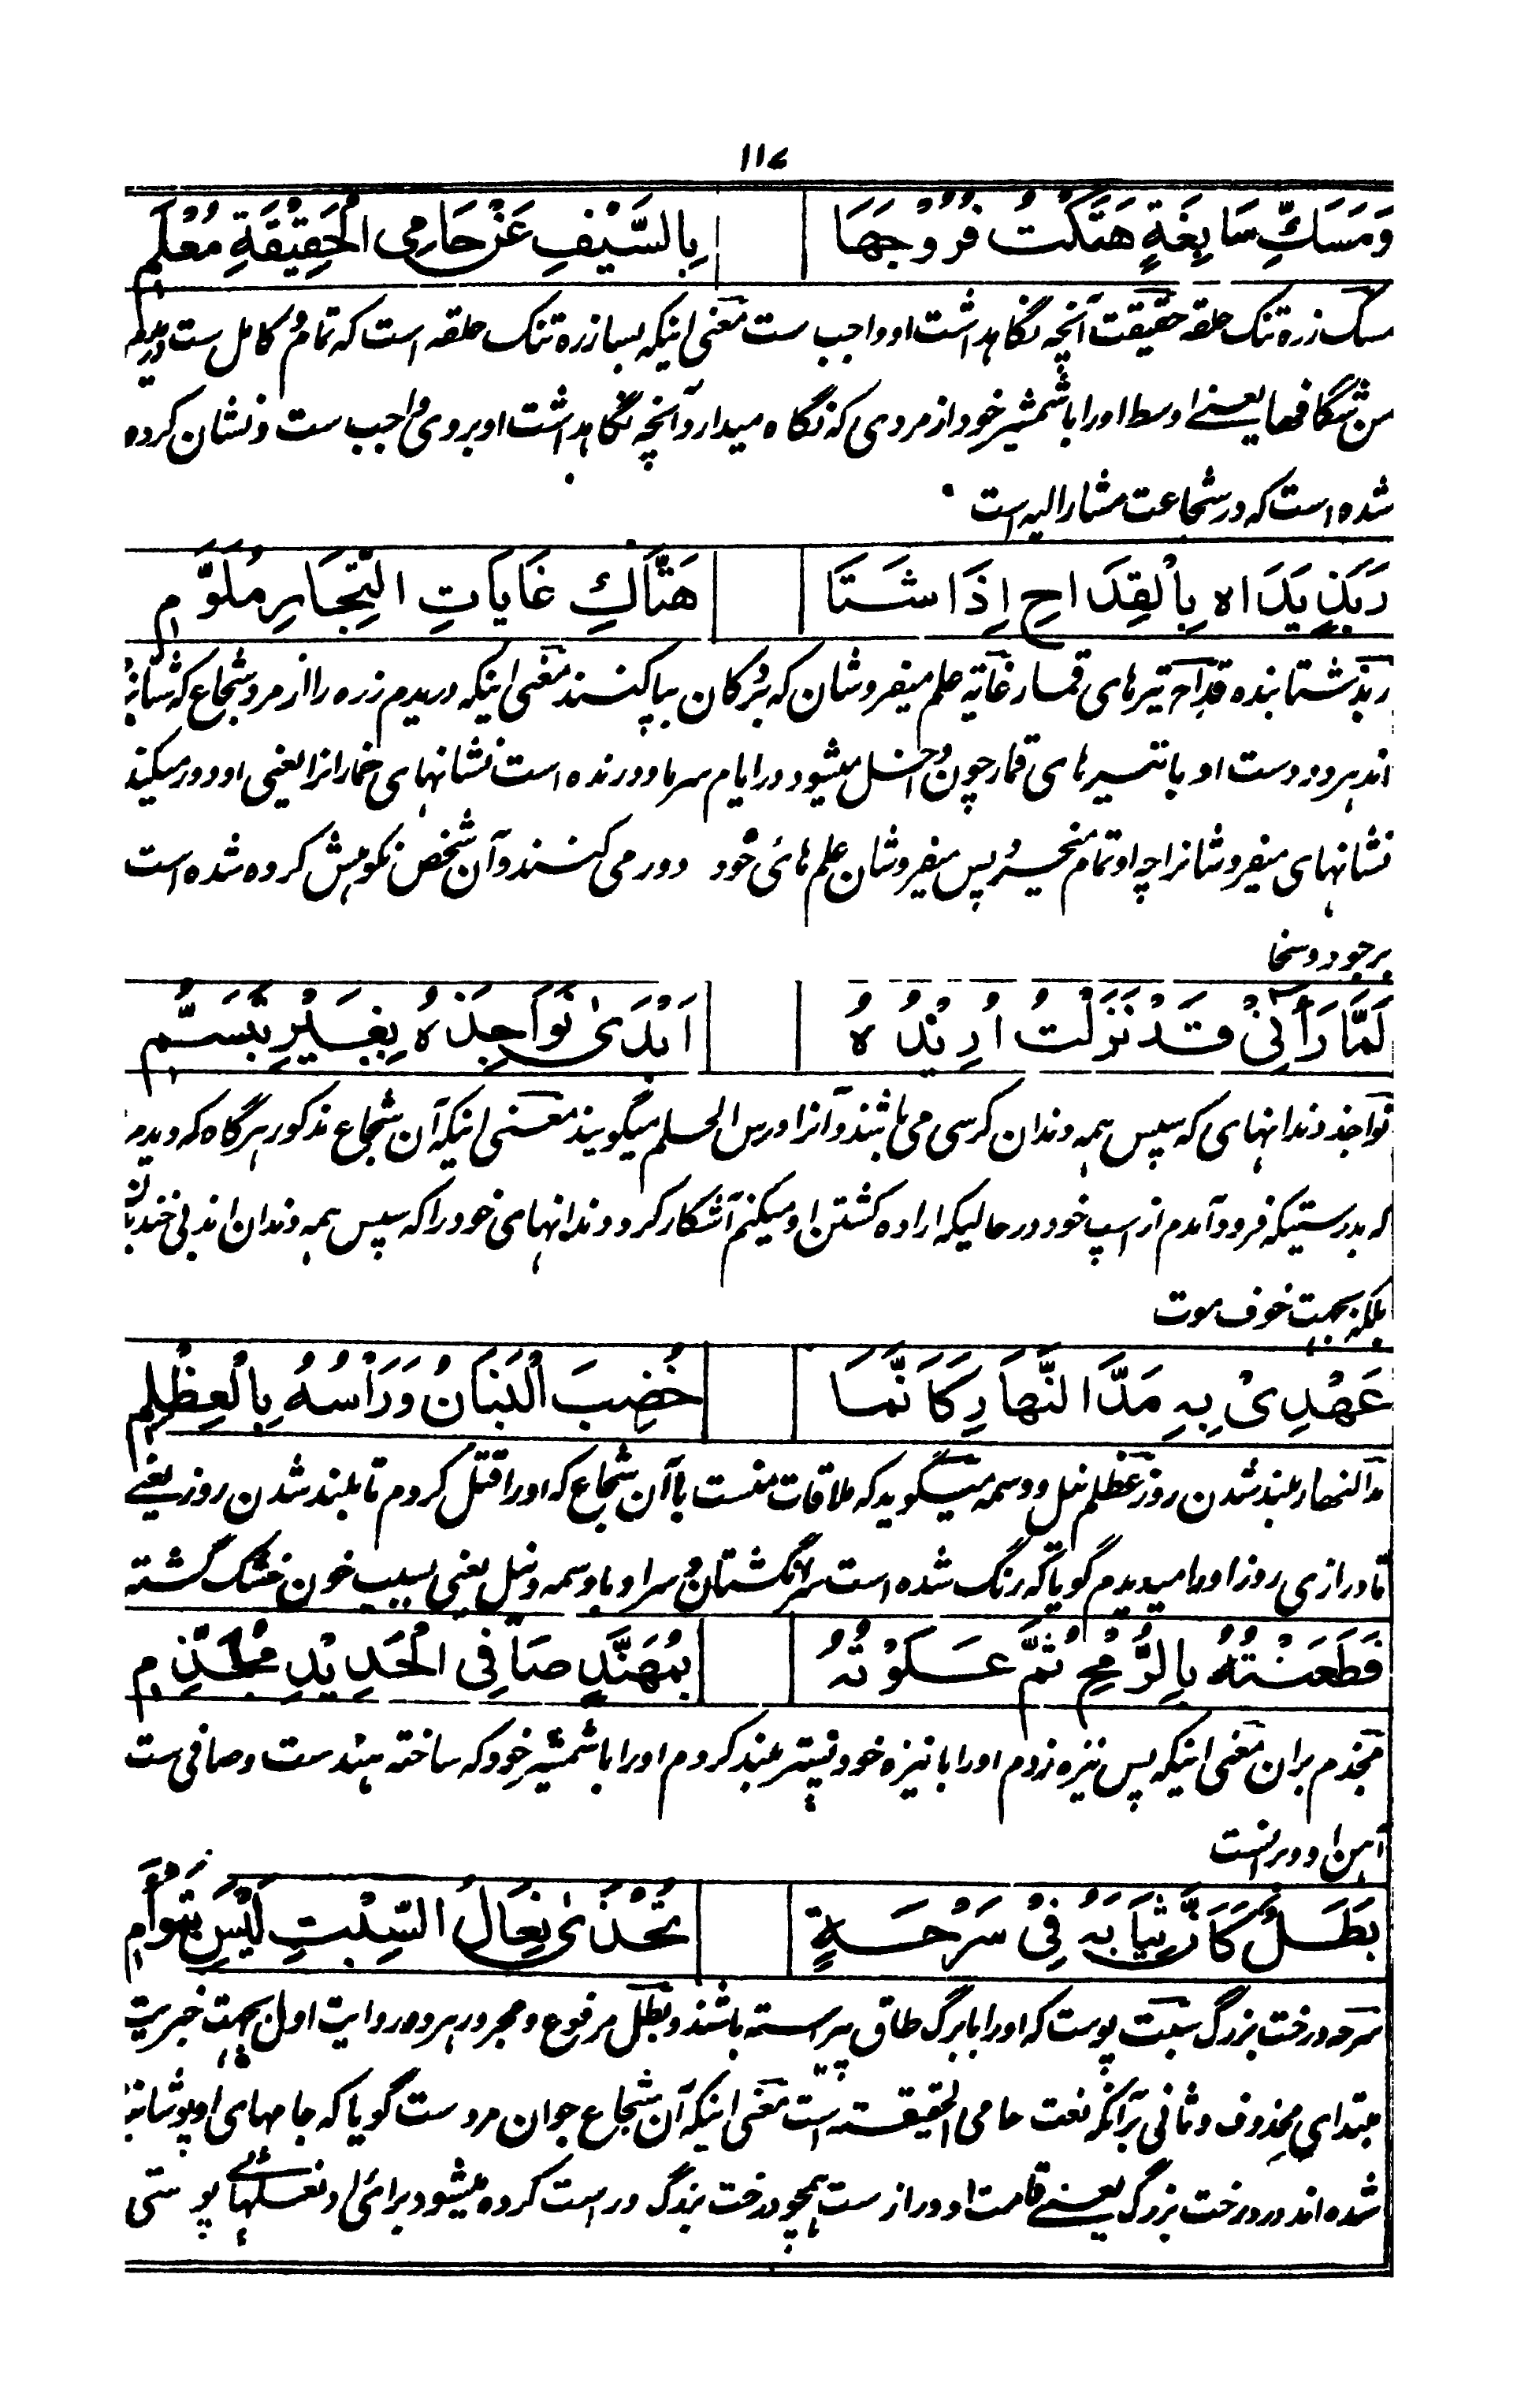 ۱۱۷
وَمَسَكِّ سَابِغَةٍ هَتَكْتُ فُرُوْجَهَا بِالسَّيْفِ عَنْ حَامِی الْحَقِيْقَةِ مُعْلَمٖ
مسک زره تنک حلقه حقیقت آنچه نگاهداشت او واجب ست معنی اینکه بسا زره تنک حلقه است که تمام و کامل ست
من شگافها یعنے اوسط او را با شمشیر خود از مردی که نگاه میدارد آنچه نگاهداشت او بروی واجب ست و نشان کرده
شده است که در شجاعت مشار الیه است
رَبَذٍ يَدَاهُ بِالْقِدَاحِ اِذَا شَتَا هَتَّاكِ غَايَاتِ التِّجَارِ مُلَوَّمٖ
ربذ شتابنده قداح تیرهای قمار غایة علم میفروشان که بر دکان بپا کنند معنی اینکه دریدم زره را از مرد شجاع که شتابنده
اند هر دو دست او با تیرهای قمار چون داخل میشود در ایام سرما و درنده است نشانهای خمارانرا یعنی او دور میکند
نشانهای میفروشانرا چه او تمام میخرد پس میفروشان علم های خود دور می کنند و آن شخص نکوهش کرده شده است
بر جود و سخا
لَمَّا رَأٰنِیْ قَدْ نَزَلْتُ اُرِيْدُهُ اَبْدَیٰ نَوَاجِذَهُ بِغَيْرِ تَبَسُّمٖ
نواجذ دندانهای که سپس همه دندان کرسی می باشند و آنرا ضرس الحلم میگویند معنی اینکه آن شجاع مذکور هرگاه که دید مرا
که بدرستیکه فرود آمدم از اسپ خود در حالیکه اراده کشتن او میکنم آشکار کرد دندانهای خود را که سپس همه دندان اند بی خندیدن
بلکه بجهت خوف موت
عَهْدِیْ بِهِ مَدَّ النَّهَارِ كَاَنَّمَا خُضِبَ الْبَنَانُ وَرَاْسُهُ بِالْعِظْلِمِ
مد النهار بلند شدن روز عظلم نیل و وسمه میگوید که ملاقات منست با آن شجاع که او را قتل کردم تا بلند شدن روز یعنے
تا درازی روز او را میدیدم گویا که رنگ شده است سر انگشتان و سر او با وسمه و نیل یعنی بسبب خون خشک گشته
فَطَعَنْتُهُ بِالرُّمْحِ ثُمَّ عَلَوْتُهُ بِمُهَنَّدٍ صَافِی الْحَدِيْدِ مِخْذَمٖ
مخذم بران معنی اینکه پس نیزه زدم او را با نیزه خود نیستر بلند کردم او را با شمشیر خود که ساخته هندست و صافی ست
آهن او و برانست
بَطَلٌ كَاَنَّ ثِيَابَهُ فِیْ سَرْحَةٍ تُحْذَیٰ نِعَالَ السِّبْتِ لَيْسَ بِتَوْاَمٖ
سرحه درخت بزرگ سبت پوست که او را با برگ طاق پیراسته باشند و بطل مرفوع و مجرور هر دو روایت اول بجهت خبریت
مبتدای محذوف و ثانی برآنکه نعت حامی الحقیقة است معنی اینکه آن شجاع جوان مردست گویا که جامهای او پوشانیده
شده اند در درخت بزرگ یعنے قامت او درازست همچو درخت بزرگ و راست کرده میشود برای او نعلهائے پوستی